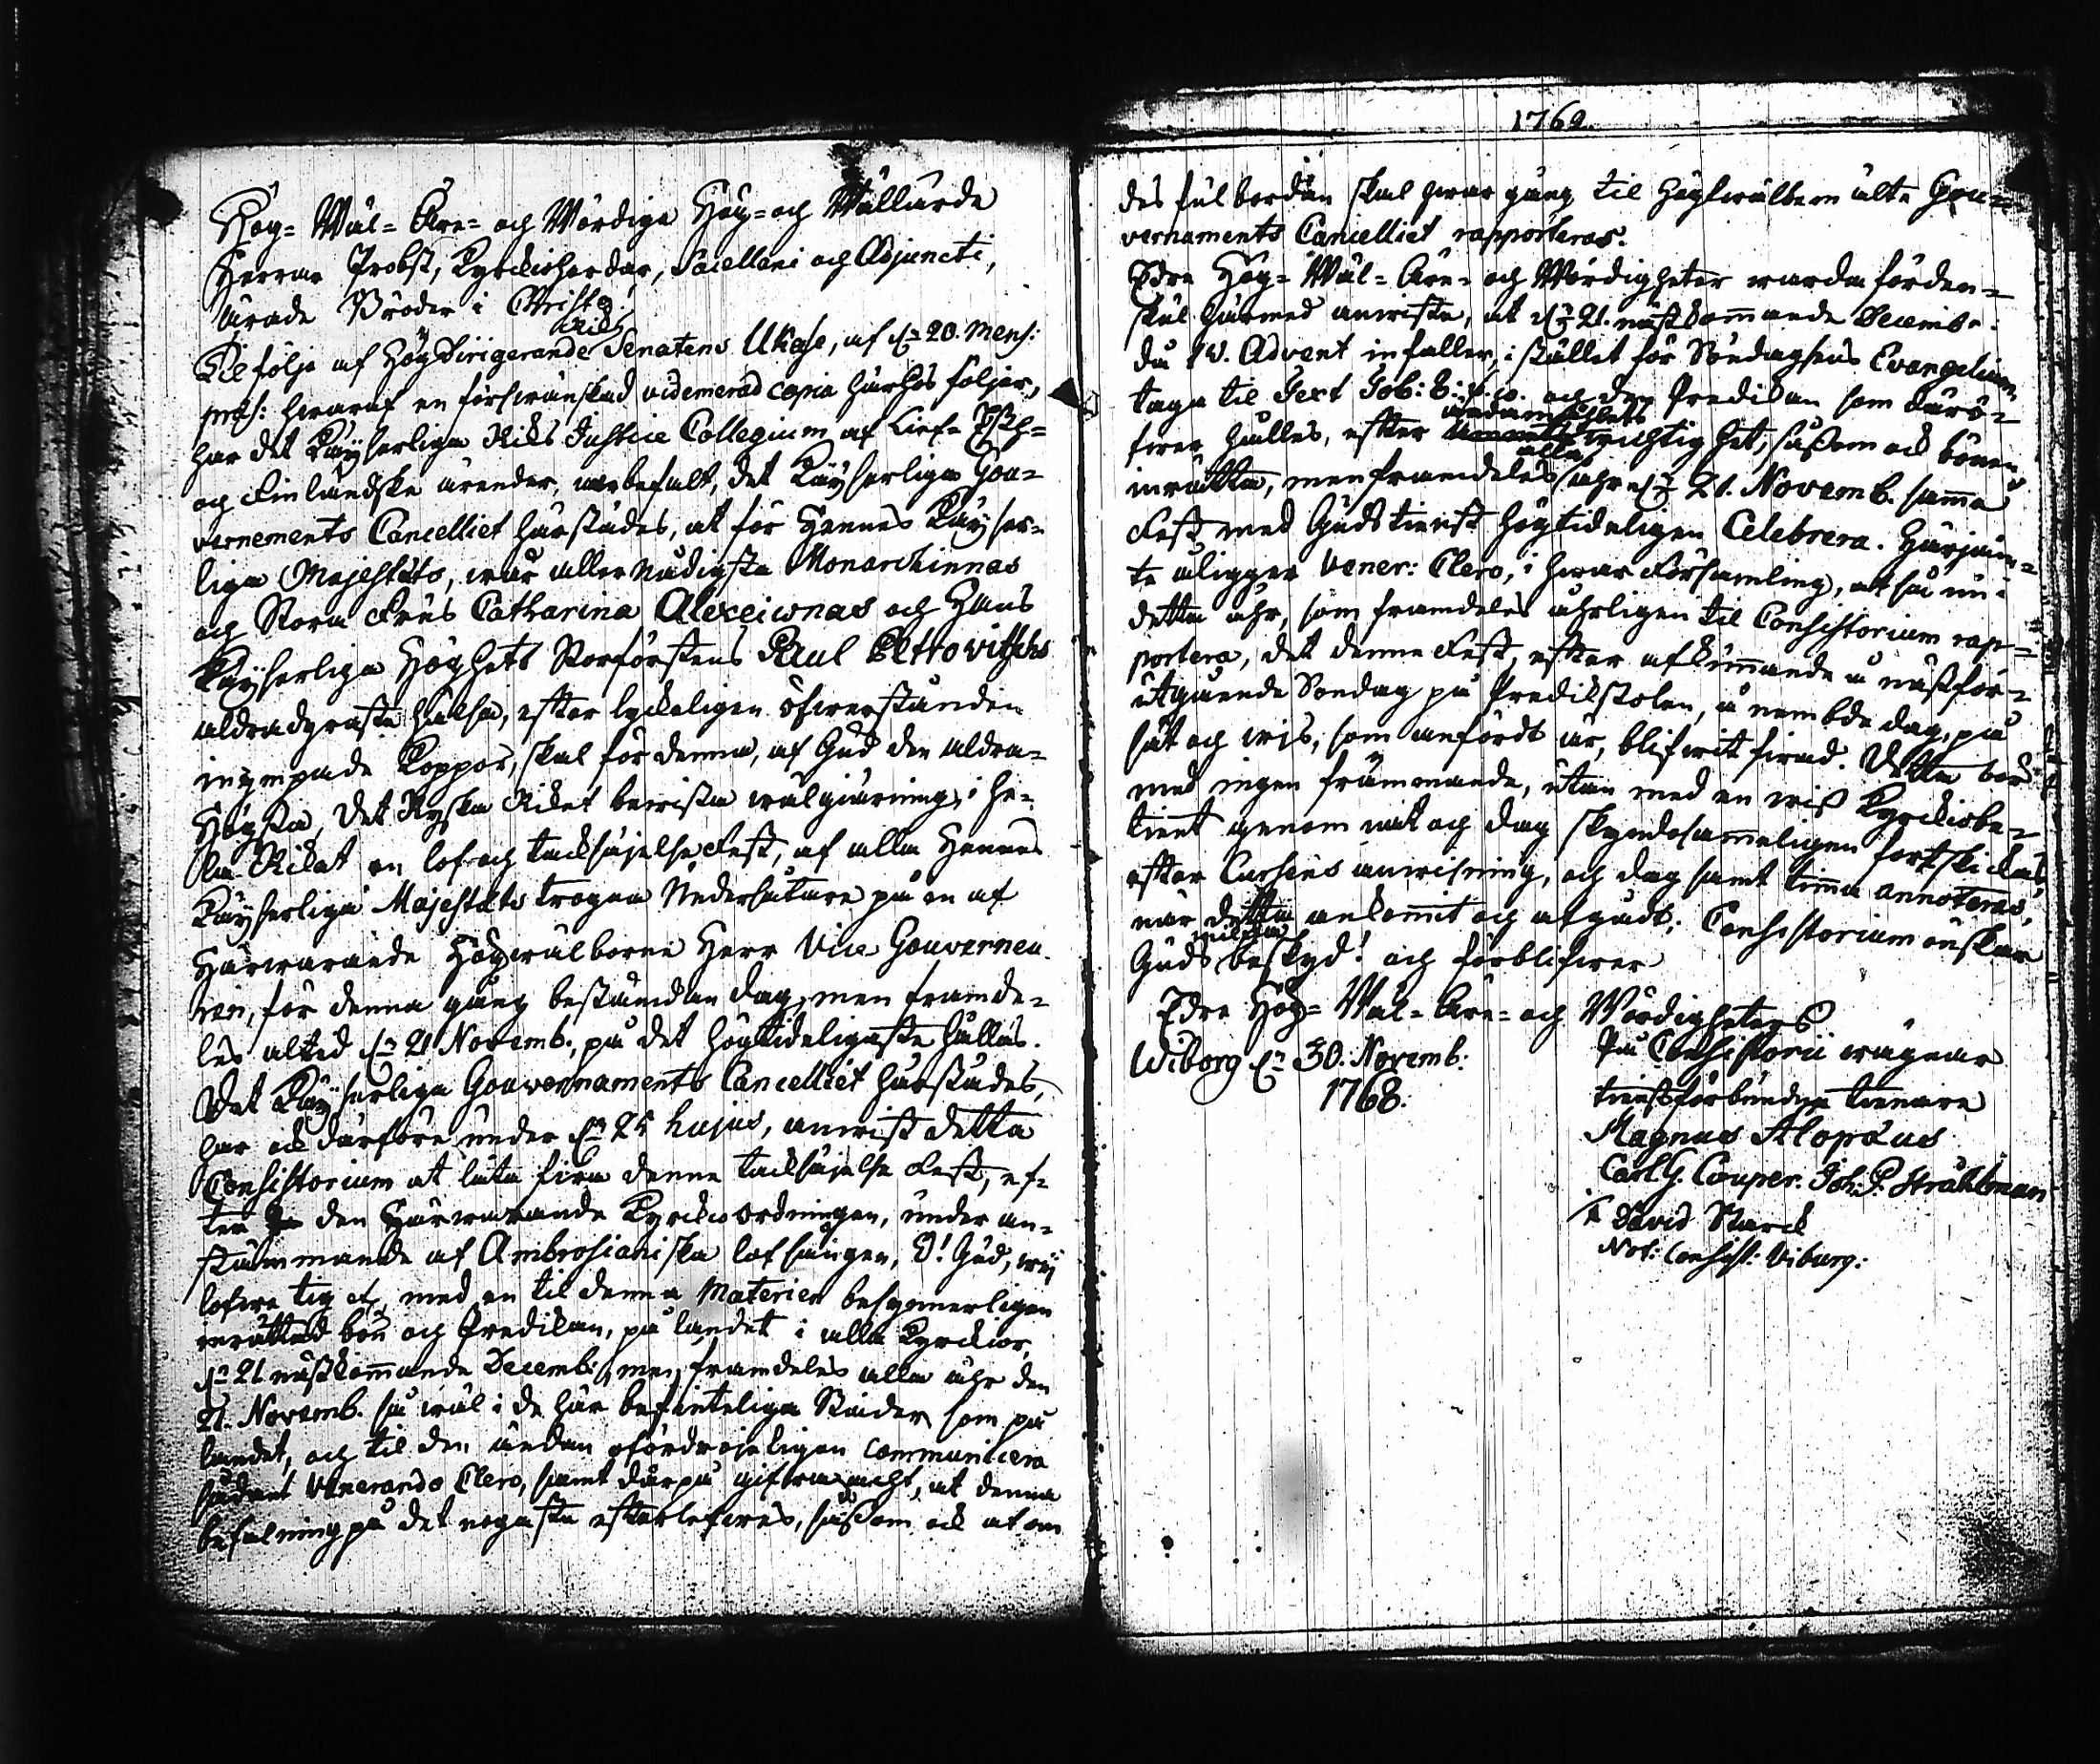 Hög- Wäl- Äre- och Wördige Hög- och Wällärde
Herrar Probst, Kyrckioherdar, Sacellani och Adjuncti,
ärade Bröder i Christo!
Til följe af Högdirigerande Riks Senatens Ukase, af d. 20. mens:
præs: hwaraf en förswänskad videmerad copia härhos följer,
har det Käyserliga Riks Justice Collegium af Lief- Esth-
och Finländske ärender, anbefalt, det Käyserliga Gou-
vernements Cancelliet härstädes, at för Hennes Käyser-
liga Majestäts, wår allernådigsta Monarchinnas
och Stora Frus Catharina Alexeiwnas och Hans
Käyserliga Höghets Storförstens Paul Pettrowitschs
aldradyraste hälsa, efter lyckeligen öfwerstånden
inympade Koppor, skal för denna, af Gud den aldra-
Högsta, det Ryska Riket bewista wälgiärning, i he-
la Riket en lof- och tacksäjelse Fest, af alla Hennes
Käyserliga Majestäts trogna Undersåtare på en af
Härwarande Högwälborne Herr Vice Gouverneu-
ren, för denna gång bestämdan dag, men framde-
les altid d. 21 Novemb., på det högtideligaste hållas.
Det Käyserliga Gouvernaments Cancelliet härstädes,
har ock därföre under d. 25 hujus, anwist detta
Consistorium at låta fira denne tacksäjelse Fest, ef-
ter den Härwarande Kyrckioordningen, under an-
stämmande af Ambrosianiska lofsången, O! Gud, wij
lofwe tig etc med en til denna Materien besynnerligen
inrättad bön och Predikan, på landet i alla Kyrckior,
d. 21 nästkommande Decemb: men framdeles alla åhr den
21. Novemb. så wäl i de här befinteliga Städer som på
landet, och til den ändan ofördröjeligen communicera
sådant Venerando Clero, samt därpå gifwa acht, at denna
befalning på det nogaste efterlefwes, såsom ock at om
1769.
des fulbordan skal hwar gång til Högbemälte Gou-
vernaments Cancelliet rapporteras.
Edre Hög- Wäl- Äre- och Wördigheter warda förden-
skul härmed anwiste, at d. 21. nästkommande Decemb.
då IV. Advent infaller, i stället för Söndagsens Evangelium
taga til Text och den Predikan som derö-
fwer hålles, efter ändamåhlets wichtighet, såsom ock bönen
inrätta, men framdeles alla åhr d. 21. Novemb. samma
Fest med Gudstienst högtideligen Celebrera. Härjäm-
te åligger Vener: Clero, i hwar Församling, at så nu i
detta åhr, som framdeles åhrligen til Consistorium rap-
portera, det denne Fest, efter afkunnande å nästför-
utgående Söndag på Predikstolen, å nembde dag, på
sätt och wis, som anfördt är, blifwit firad. Detta bör
med ingen främmande, utan med en wis Kyrckiobe-
tient genom natt och dag skyndesammeligen fortskickas,
efter Cursens anwisning, och dag samt timma annoteras,
när detta ankommit och afgådt. Consistorium önskar
Guds milda beskyd! och förblifwer
Edre Hög- Wäl- Äre- och Wördigheters
Wiborg d. 30. Novemb:
1768.
På Consistorii wägnar
tienstförbundne tienare
Magnus Alopæus
Carl G. Couper. Joh: P. Strählman
David Starck
Not: Consist: Viburg: